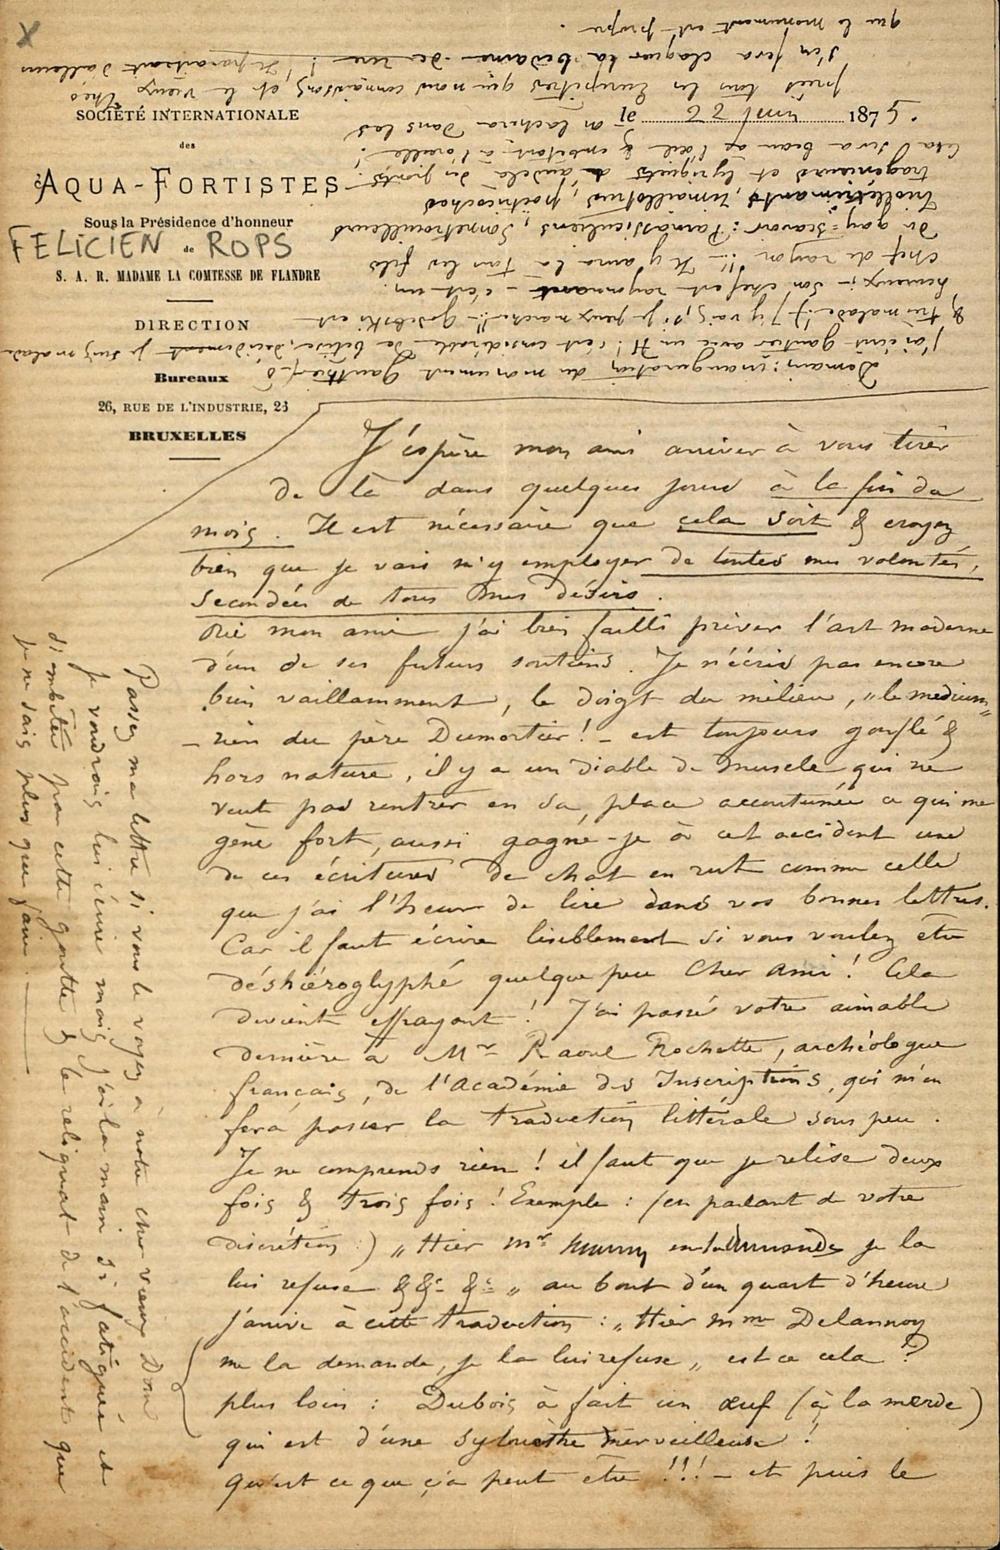 SOCIÉTÉ INTERNATIONALE
des
AQUA-FORTISTES
Sous la Présidence d'honneur
de
FELICIEN ROPS
S. A. R. MADAME LA COMTESSE DE FLANDRE
DIRECTION
Bureaux
26, RUE DE L'INDUSTRIE, 23
BRUXELLES
le 22 juin 1875.
J'espère mon ami arriver à vous tirer
de là dans quelques jours à la fin du
mois. Il est nécessaire que cela soit & croyez
bien que je vais m'y employer de toutes mes volontés,
secondées de tous mes désirs.
Oui mon ami j'ai bien failli priver l'art moderne
d'un de ses futurs soutiens. Je n'écris pas encore
bien vaillamment, le doigt du milieu, "le medium"
– rien du père Dumortier! – est toujours gonflé &
hors nature, il y a un diable de muscle qui ne
veut pas rentrer en sa place accoutumée ce qui me
gêne fort, aussi gagné-je à cet accident une
de ces écritures de chat en rut comme celle
que j'ai l'heur de lire dans vos bonnes lettres.
Car il faut écrire lisiblement si vous voulez être
déshiéroglyphé quelque peu Cher Ami! Cela
devient effrayant! J'ai passé votre aimable
dernière à Mr Raoul Rochette, archéologue
français, de l'Académie des Inscriptions, qui m'en
fera passer la traduction littérale sous peu.
Je ne comprends rien! il faut que je relise deux
fois & trois fois! Exemple: (en parlant de votre
discrétion:) "Hier mr je la
lui refuse &&c &c" au bout d'un quart d'heure
j'arrive à cette traduction: "Hier mme Delannoy
me la demande, je la lui refuse" est ce cela?
plus loin: Dubois à fait un œuf (à la merde)
qui est d'une merveilleuse!
Qu'est ce que ça peut être!!! – et puis le
Passez ma lettre si vous le voyez à notre cher vieux Dom
je voudrais lui écrire mais j'ai la main si fatiguée et
si embêtée par cette goutte & le reliquat de l'accident que
je ne sais plus que faire.
Demain: inauguration du monument Gauthier (
j'ai écrit Gautier avec un H! c'est considérable de bêtise, décidement je suis malade
& très malade!) j'y vais, si je peux marcher!! – Godebski est
heureux, – son chef est rayonnant – c'est un
chef de rayon!!! Il y aura là tous les fils
du gay-sçavoir: Parnassiculiers, Sonnetrouilleurs
Triolettrimants, rimaillotins, poëtriochos
tragenieurs et lyriquets au delà des ponts!
Cela sera beau à l'œil & embêtant à l'oreille!
On lâchera dans les
près tous les Euripides que nous connaissons, et le vieux Théo
s'en fera claquer la bedaine de rire! Il paraitrait d'ailleurs
que le monument est propre.